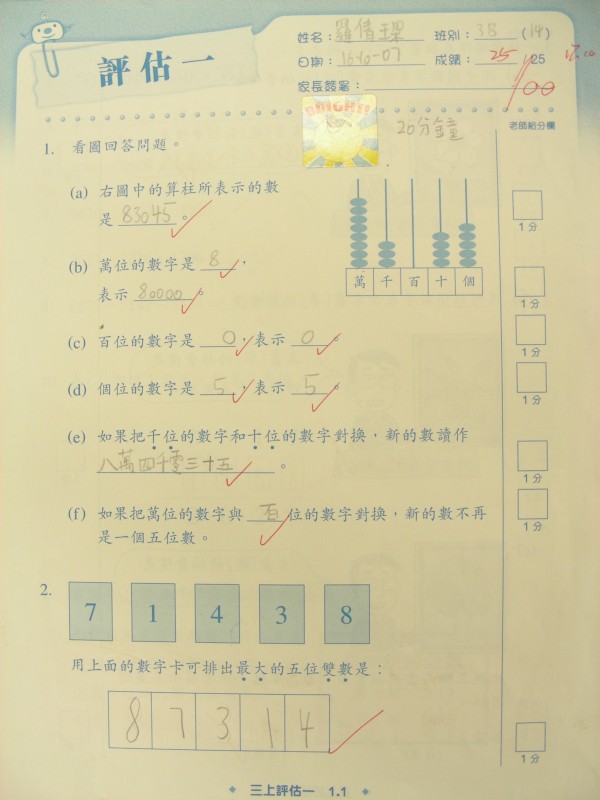 評估一
姓名：羅倩 班別：3B (14)
日期：16-10-07 成績：25/25
家長簽署：
100
BRIGHT!
20分鐘
老師給分欄
1. 看圖回答問題。
(a) 右圖中的算柱所表示的數
是 83045 。
1分
萬 千 百 十 個
(b) 萬位的數字是 8 ，
表示 80000 。
1分
(c) 百位的數字是 0 ，表示 0 。
1分
(d) 個位的數字是 5 ，表示 5 。
1分
(e) 如果把千位的數字和十位的數字對換，新的數讀作
八萬四千零三十五 。
1分
(f) 如果把萬位的數字與 百 位的數字對換，新的數不再
是一個五位數。
1分
2. 7 1 4 3 8
用上面的數字卡可排出最大的五位雙數是：
8 7 3 1 4
1分
三上評估一 1.1